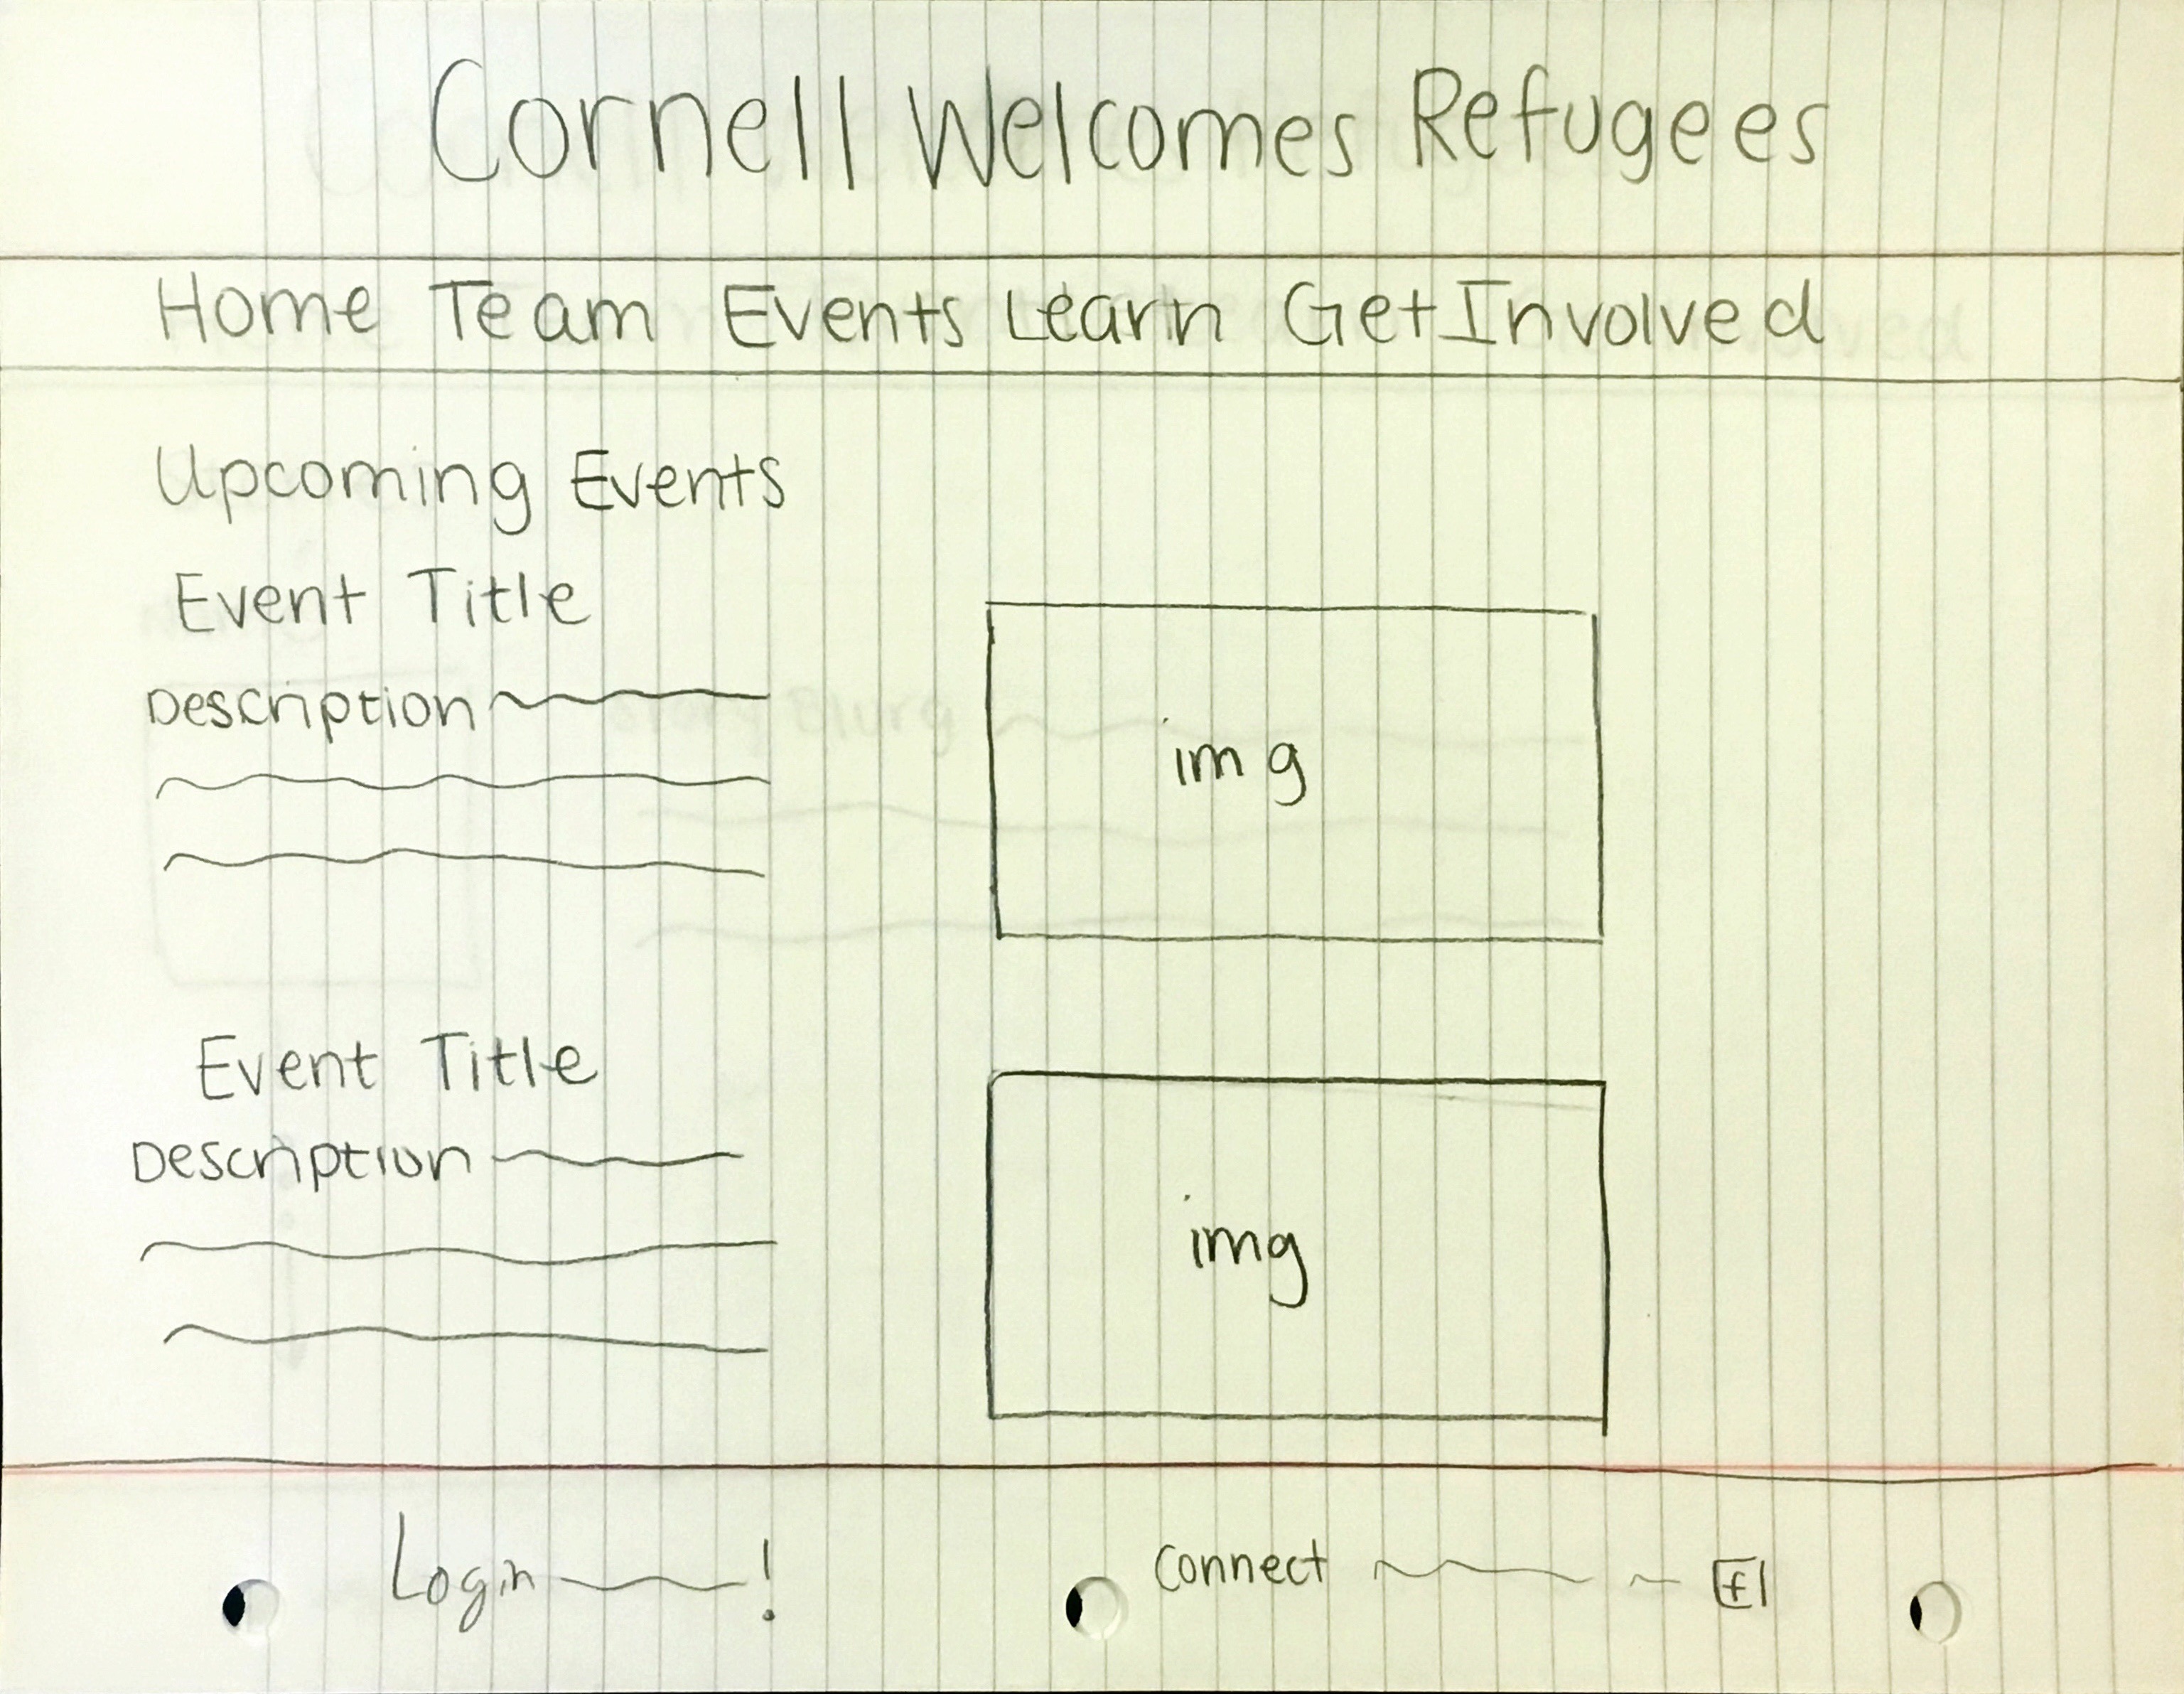 Cornell Welcomes Refugees
Home Team Events Learn Get Involved
Upcoming Events
Event Title
Description
img
Event Title
Description
img
Login !
Connect f